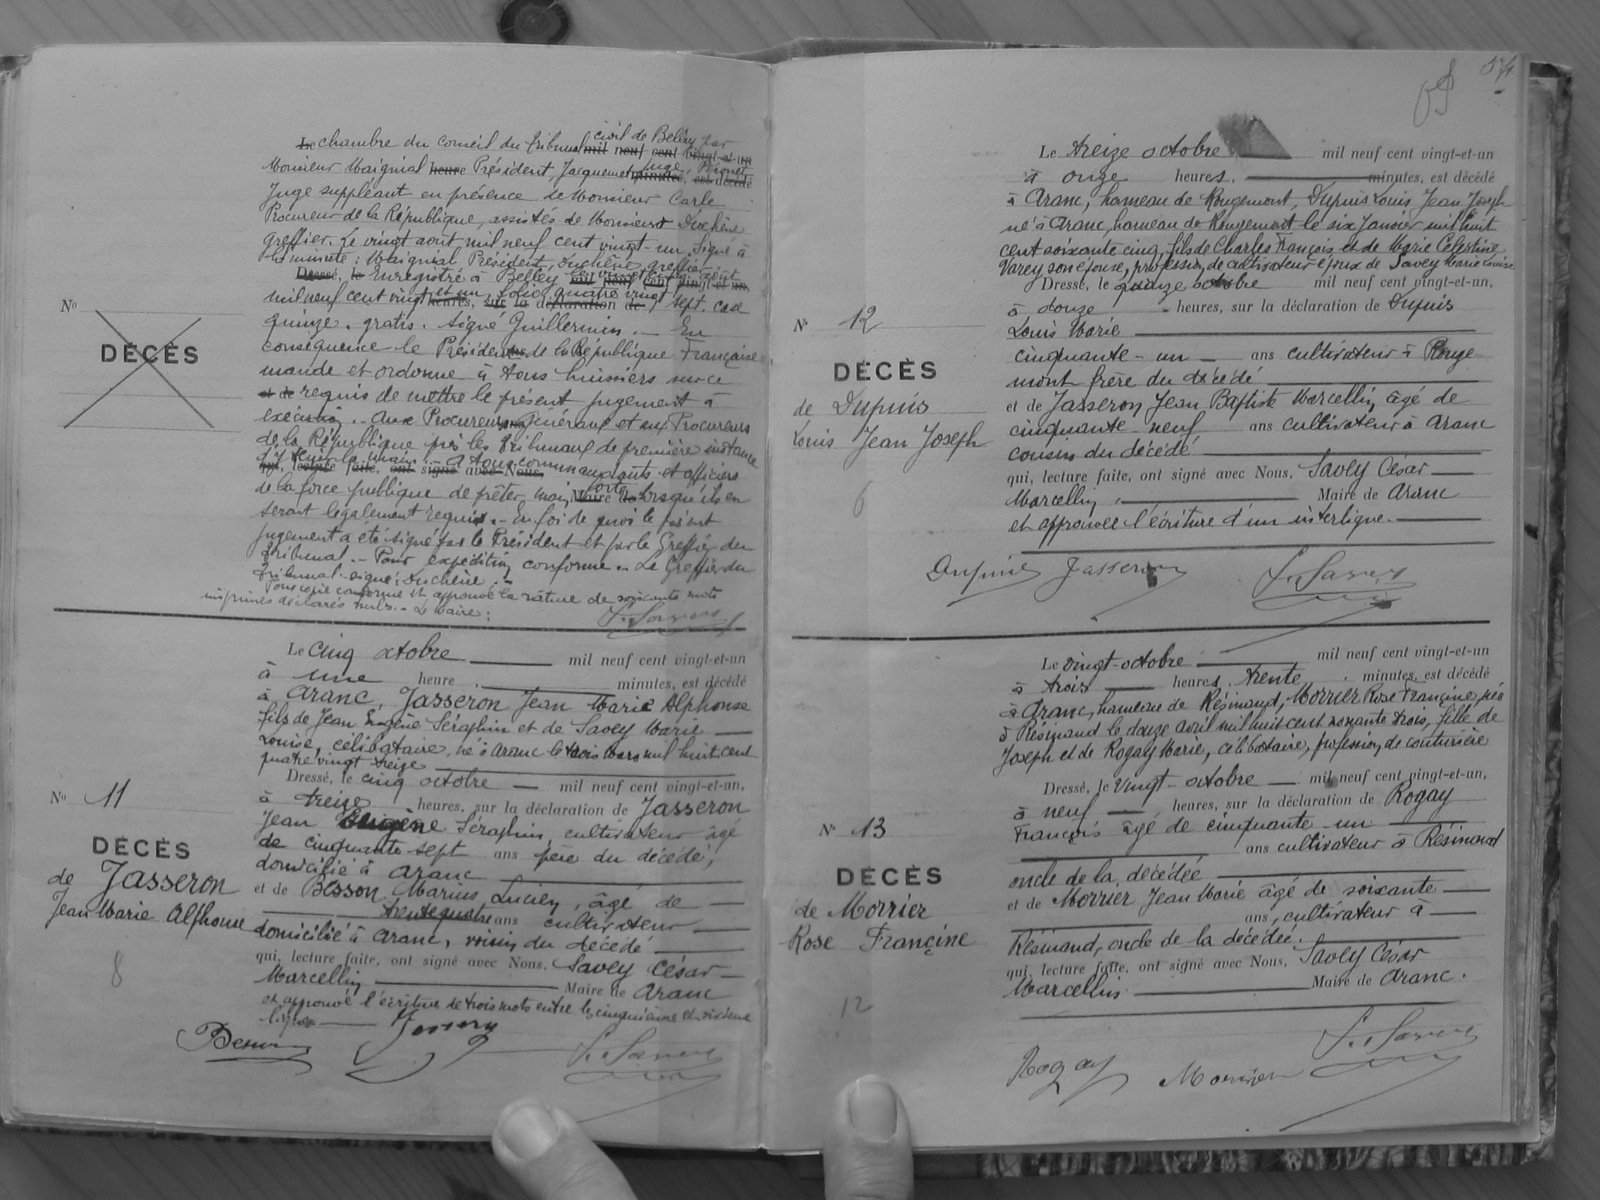 chambre du conseil du tribunal civil de Belley par
Monsieur Maignial Président, Jacquemet Juge,
Juge suppléant en présence de Monsieur Carle
Procureur de la République, assistés de Monsieur Duchêne
greffier. Le vingt août mil neuf cent vingt-un, Signé à
la minute : Maignial Président, Duchêne greffier
Enregistré à Belley
mil neuf cent vingt et un, folio quatre vingt sept. case
quinze. gratis. Signé Guillermin. _ En
conséquence le Président de la République Française
mande et ordonne à tous huissiers sur ce
requis de mettre le présent jugement à
exécution. Aux Procureurs Généraux et aux Procureurs
de la République près les Tribunaux de première instance
d'y tenir la main. A tous commandants et officiers
de la force publique de prêter main forte lorsqu'ils en
seront légalement requis. _ En foi de quoi le présent
jugement a été signé par le Président et par le Greffier du
Tribunal. _ Pour expédition conforme. _ Le Greffier du
Tribunal signé : Duchêne. _
Pour copie conforme et approuvé la rature de soixante mots
imprimés déclarés nuls. _ Le Maire :
Nº
DÉCÈS
Le Cinq octobre mil neuf cent vingt-et-un
à une heure minutes, est décédé
à Aranc, Jasseron Jean Marie Alphonse
fils de Jean Eugène Séraphin et de Savey Marie
Louise, célibataire, né à Aranc le trois Mars mil huit cent
quatre vingt treize
Dressé, le cinq octobre mil neuf cent vingt-et-un,
à treize heures, sur la déclaration de Jasseron
Jean Eugène Séraphin, cultivateur âgé
de cinquante-sept ans père du décédé,
domicilié à Aranc
et de Besson Marius Lucien, âgé de
trente quatre ans cultivateur
domicilié à Aranc, voisin du décédé
qui, lecture faite, ont signé avec Nous, Savey César
Marcellin Maire de Aranc
et approuvé l'écriture de trois mots entre le cinquième et sixième
ligne
Nº 11
DÉCÈS
de Jasseron
Jean Marie Alphonse
8
Besson Jasseron
C. Savey
57
Le treize octobre mil neuf cent vingt-et-un
à onze heures, minutes, est décédé
à Aranc, hameau de Rougemont, Dupuis Louis Jean Joseph
né à Aranc, hameau de Rougemont le six Janvier mil huit
cent soixante cinq, fils de Charles François et de Marie Célestine
Varey son épouse, profession de cultivateur époux de Savey Marie Louise
Dressé, le quinze octobre mil neuf cent vingt-et-un,
à douze heures, sur la déclaration de Dupuis
Louis Marie
cinquante-un ans cultivateur à Rouge
mont frère du décédé
et de Jasseron Jean Baptiste Marcellin âgé de
cinquante-neuf ans cultivateur à Aranc
cousin du décédé
qui, lecture faite, ont signé avec Nous, Savey César
Marcellin, Maire de Aranc
et approuvé l'écriture d'un interligne.
Nº 12
DÉCÈS
de Dupuis
Louis Jean Joseph
6
Dupuis Jasseron C. Savey
Le vingt-octobre mil neuf cent vingt-et-un
à trois heures, trente minutes, est décédé
à Aranc, hameau de Résinand, Morrier Rose Francine née
à Résinand le douze avril mil huit cent nonante trois, fille de
Joseph et de Rogay Marie, célibataire, profession de couturière
Dressé, le vingt-octobre mil neuf cent vingt-et-un,
à neuf heures, sur la déclaration de Rogay
François âgé de cinquante-un
ans cultivateur à Résinand
oncle de la décédée
et de Morrier Jean Marie âgé de soixante
ans, cultivateur à
Résinand, oncle de la décédée.
qui, lecture faite, ont signé avec Nous, Savey César
Marcellin Maire de Aranc.
Nº 13
DÉCÈS
de Morrier
Rose Francine
12
Rogay Morrier C. Savey